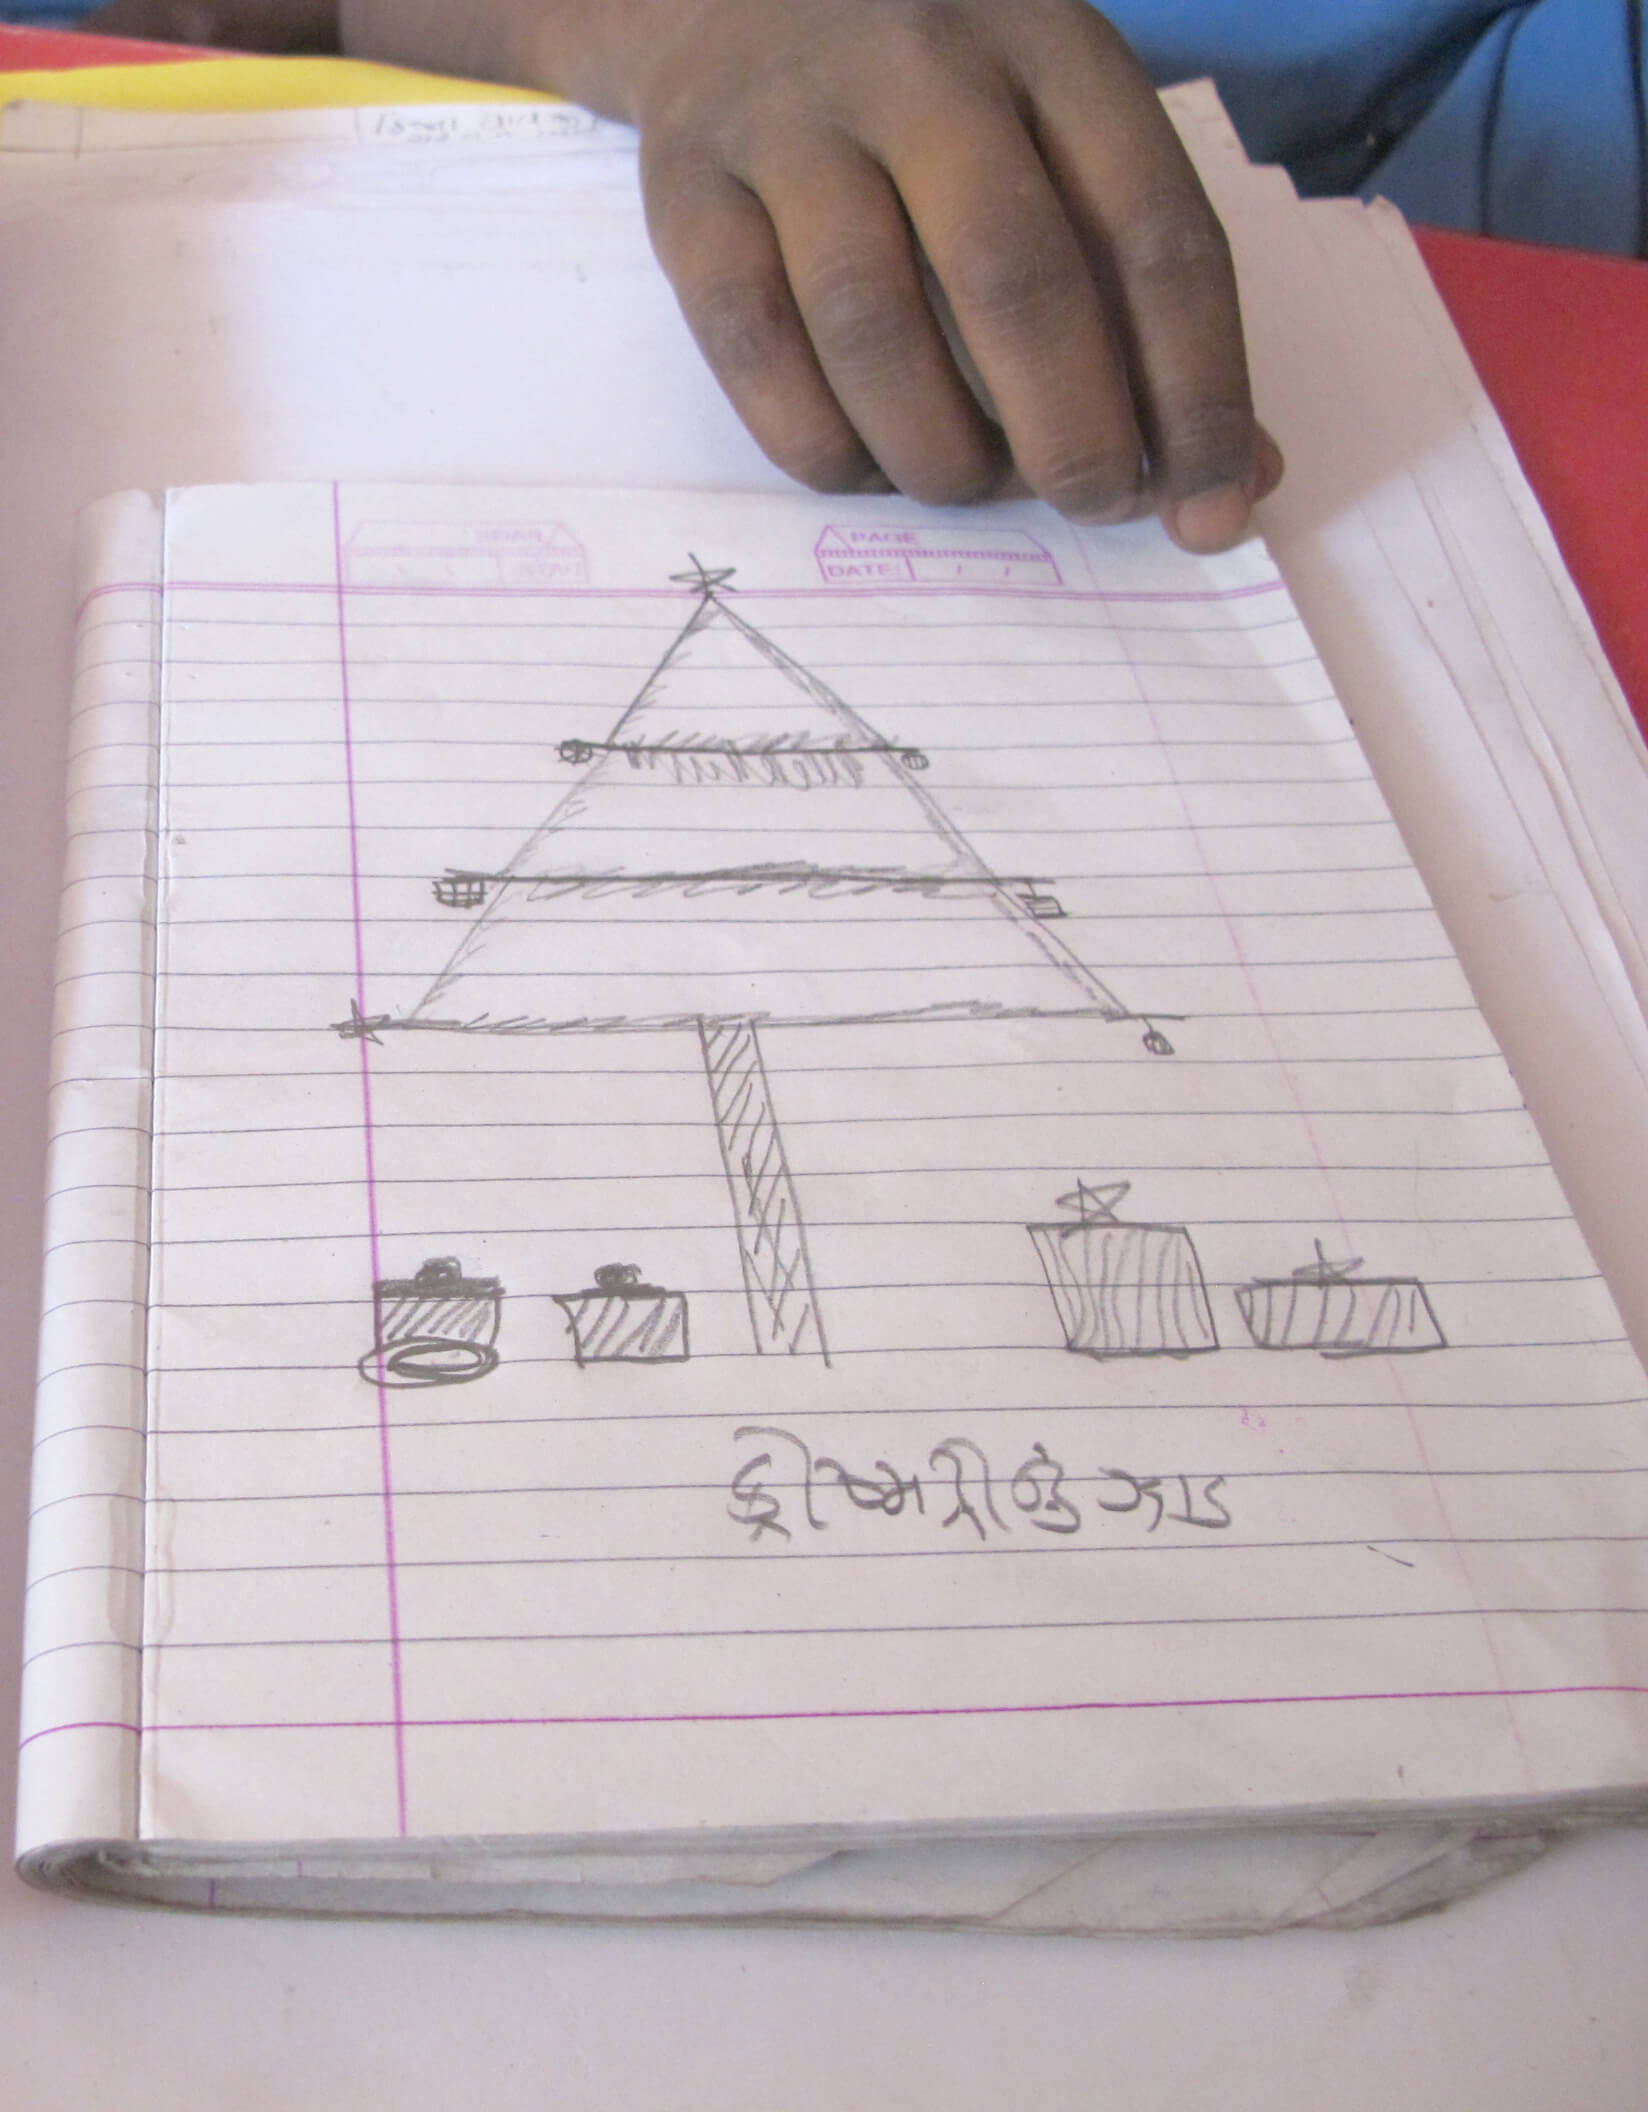 PAGE
DATE: / /
ક્રીષ્મત્રીનું ઝાડ